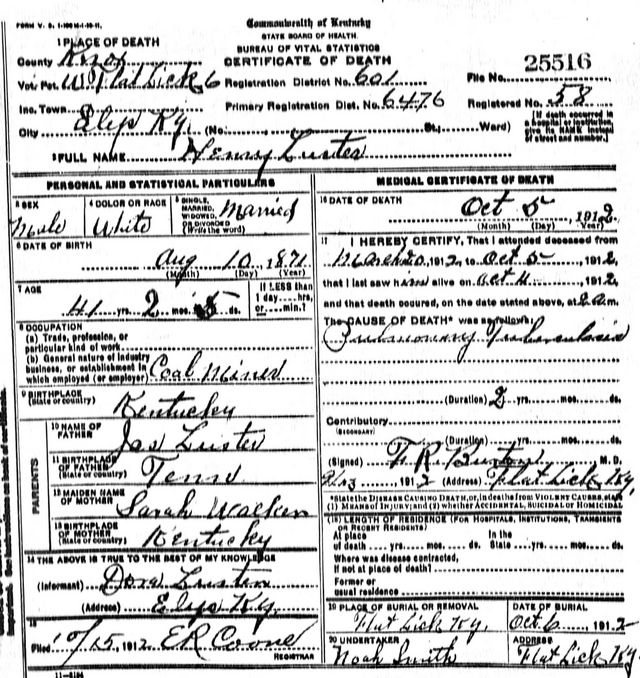 FORM V. S. 1-
Commonwealth of Kentucky
STATE BOARD OF HEALTH.
BUREAU OF VITAL STATISTICS
CERTIFICATE OF DEATH
1 PLACE OF DEATH
County Knox
Vot. Pct. W Flat Lick 6 Registration District No. 601 File No. 25516
Inc. Town Primary Registration Dist. No. 6476 Registered No. 58
City Elys Ky. (No. St., Ward)
[If death occurred in a hospital or institution, give its NAME instead of street and number.]
2 FULL NAME Henry Luster
PERSONAL AND STATISTICAL PARTICULARS
3 SEX Male
4 COLOR OR RACE White
5 SINGLE, MARRIED, WIDOWED, OR DIVORCED (Write the word) Married
6 DATE OF BIRTH
Aug 10, 1871
(Month) (Day) (Year)
7 AGE
41 yrs. 2 mos. ds.
If LESS than 1 day....hrs. or....min.?
8 OCCUPATION
(a) Trade, profession, or particular kind of work
(b) General nature of industry business, or establishment in which employed (or employer) Coal Miner
9 BIRTHPLACE
(State or country) Kentucky
PARENTS
10 NAME OF FATHER Jas Luster
11 BIRTHPLACE OF FATHER (State or country) Tenn
12 MAIDEN NAME OF MOTHER Sarah Walker
13 BIRTHPLACE OF MOTHER (State or country) Kentucky
14 THE ABOVE IS TRUE TO THE BEST OF MY KNOWLEDGE
(Informant) Dora Luster
(Address) Elys Ky
15
Filed 10/15, 1912 ER
REGISTRAR
MEDICAL CERTIFICATE OF DEATH
16 DATE OF DEATH
Oct 5, 1912
(Month) (Day) (Year)
17 I HEREBY CERTIFY, That I attended deceased from
March 20, 1912, to Oct 5, 1912,
that I last saw him alive on Oct 4, 1912,
and that death occured, on the date stated above, at 2 a m.
The CAUSE OF DEATH* was as follows:
Pulmonary Tuberculosis
(Duration) 2 yrs. mos. ds.
Contributory
(SECONDARY)
(Duration) yrs. mos. ds.
(Signed) F. R. Burton M. D.
1912 (Address) Flat Lick Ky
*State the DISEASE CAUSING DEATH, or, in deaths from VIOLENT CAUSES, state
(1) MEANS OF INJURY; and (2) whether ACCIDENTAL, SUICIDAL or HOMICIDAL
(18) LENGTH OF RESIDENCE (FOR HOSPITALS, INSTITUTIONS, TRANSIENTS OR RECENT RESIDENTS)
At place of death yrs. mos. ds. In the State yrs. mos. ds.
Where was disease contracted,
If not at place of death?
Former or usual residence
19 PLACE OF BURIAL OR REMOVAL Flat Lick Ky.
DATE OF BURIAL Oct 6, 1912
20 UNDERTAKER Noah Smith
ADDRESS Flat Lick Ky.
11-8184